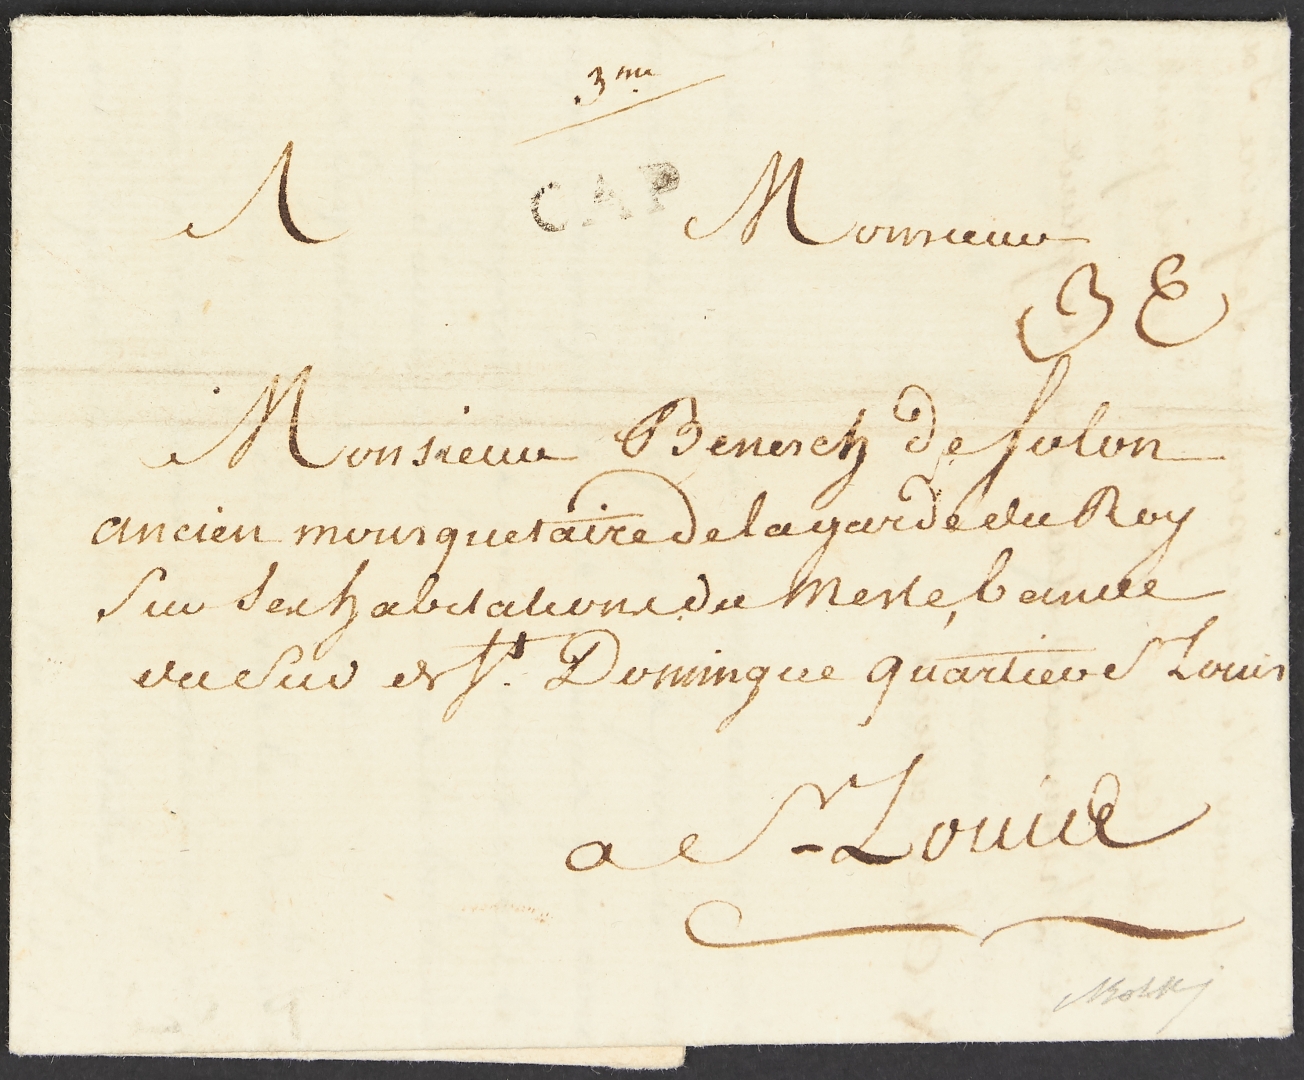 3me
A CAP Monsieur
3 E
Monsieur Benerech de folon
ancien mousquetaire de la garde du Roy
Sur Ses habitations du Mesle, bande
du Sud de St. Domingue quartier St Louis
a St Louis